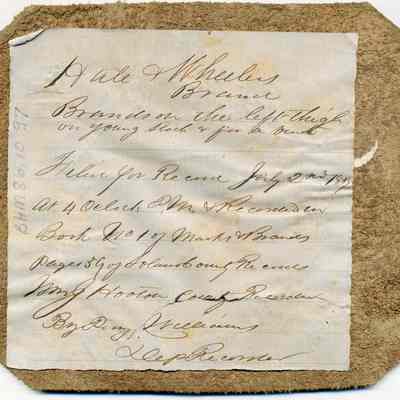 Hale & Wheelers
Brand
Brand on the left thigh
on young stock &
Filed for Record July 2nd
at 4 Oclock PM & Recorded in
Book No 1 of Marks & Brands
page 59 of County Records
Hooton County Recorder
By Benj. Williams
Dep Recorder